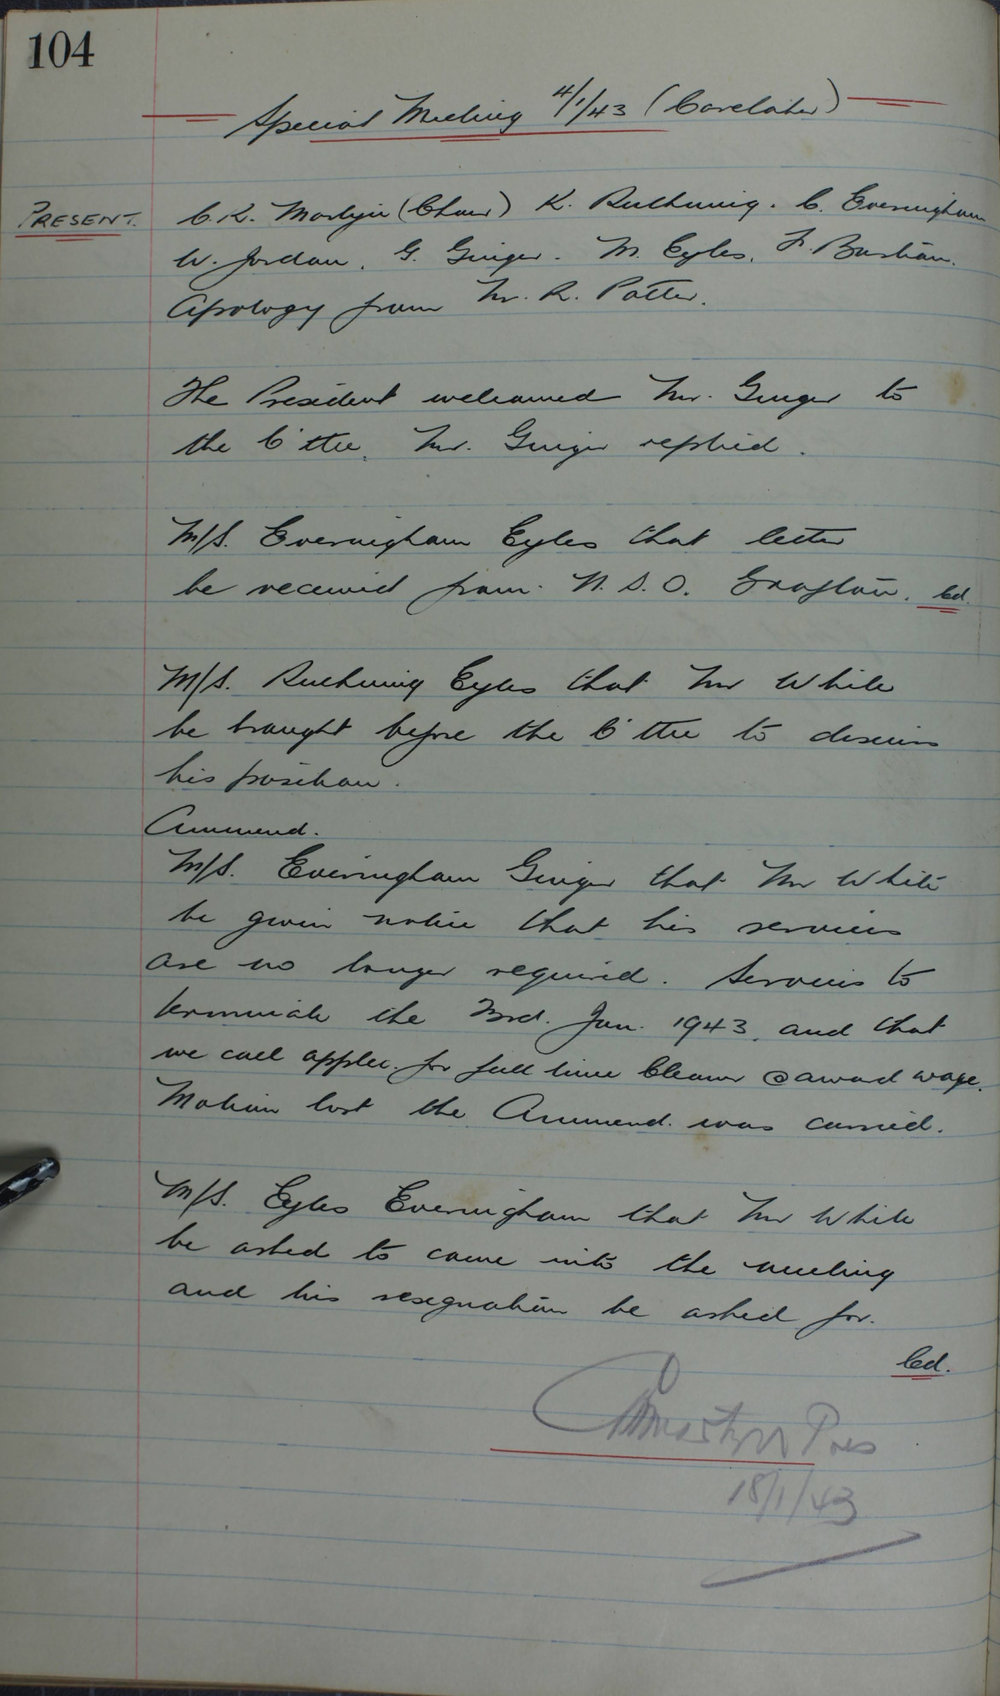 104
Special Meeting 4/1/43 (Caretaker)
PRESENT. C. K. Martyn (Chair) K. Ruthning. C. Everingham
W. Jordan. G. Ginger. M. Eyles. F. Bastian.
Apology from Mr. R. Potter.
The President welcomed Mr. Ginger to
the C'ttee. Mr. Ginger replied.
M/S. Everingham Eyles that letter
be received from N.S.O. Grafton. Cd.
M/S. Ruthning Eyles that Mr White
be brought before the C'ttee to discuss
his position.
Ammend.
M/S. Everingham Ginger that Mr White
be given notice that his services
are no longer required. Services to
terminate the 23rd. Jan. 1943. and that
we call applic. for full time Cleaner @ award wage.
Motion lost the Ammend. was carried.
M/S. Eyles Everingham that Mr White
be asked to come into the meeting
and his resegnation be asked for.
Cd.
CKMartyn Pres
18/1/43